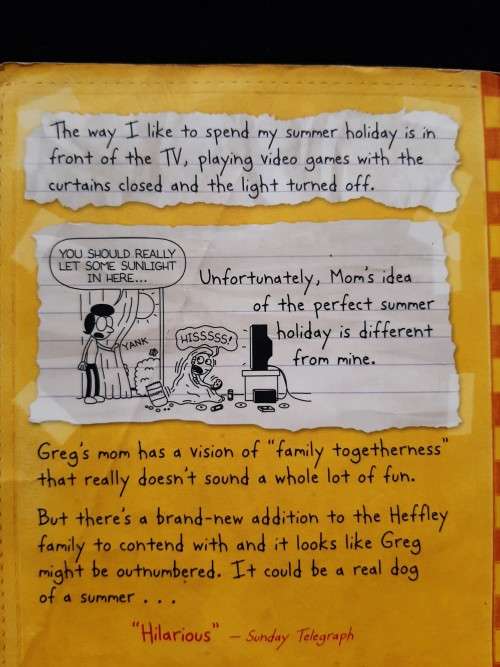 The way I like to spend my summer holiday is in
front of the TV, playing video games with the
curtains closed and the light turned off.
YOU SHOULD REALLY
LET SOME SUNLIGHT
IN HERE...
YANK
HISSSSS!
Unfortunately, Mom's idea
of the perfect summer
holiday is different
from mine.
Greg's mom has a vision of "family togetherness"
that really doesn't sound a whole lot of fun.
But there's a brand-new addition to the Heffley
family to contend with and it looks like Greg
might be outnumbered. It could be a real dog
of a summer . . .
"Hilarious" – Sunday Telegraph